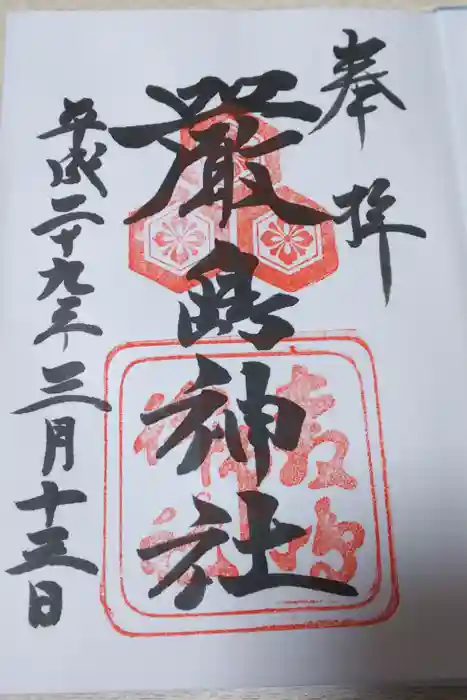 奉拝
嚴島神社
平成二十九年三月十三日